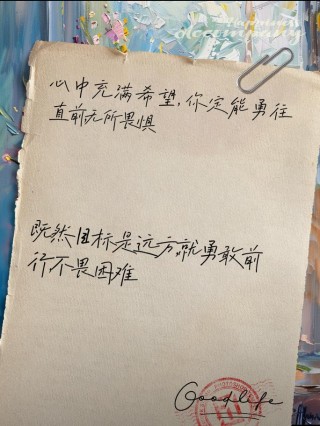 Happiness
accompany
心中充满希望,你定能勇往
直前无所畏惧
既然目标是远方,就勇敢前
行不畏困难
Good life